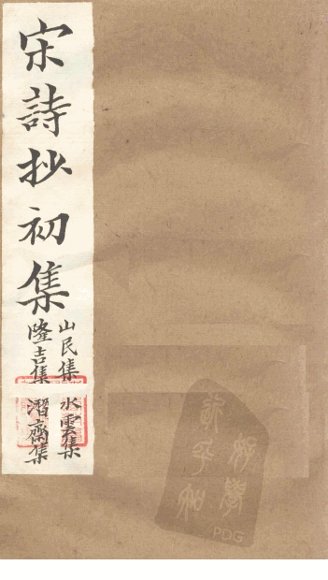 宋詩抄初集
山民集 水雲集
隆吉集 潛齋集
PDG